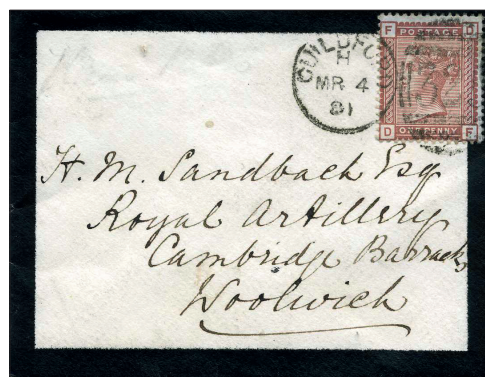 GUILDFORD
H
MR 4
81
F POSTAGE D
D ONE PENNY F
H. M. Sandback Esq
Royal Artillery
Cambridge Barracks
Woolwich